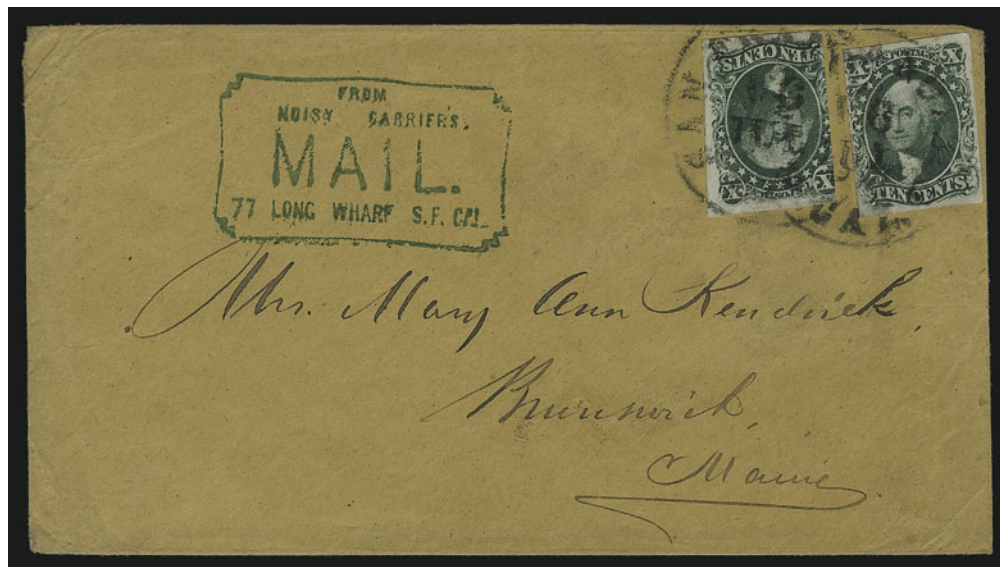 FROM
NOISY CARRIER'S.
MAIL.
77 LONG WHARF S.F. CAL.
TEN CENTS
X U.S. POSTAGE X
X X
TEN CENTS
6
JUL
CAL
Mrs. Mary Ann Kendrick,
Brunswick,
Maine.